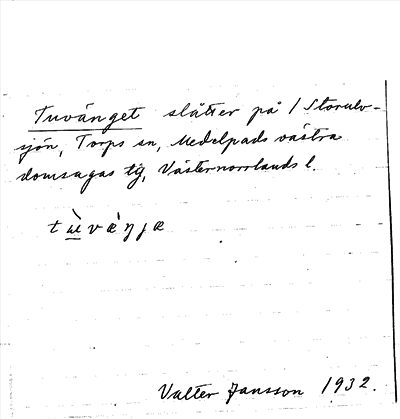 Tuvänget slåtter på / Storulv-
sjön, Torps sn, Medelpads västra
domsagas tg, Västernorrlands l.
Valter Jansson 1932.